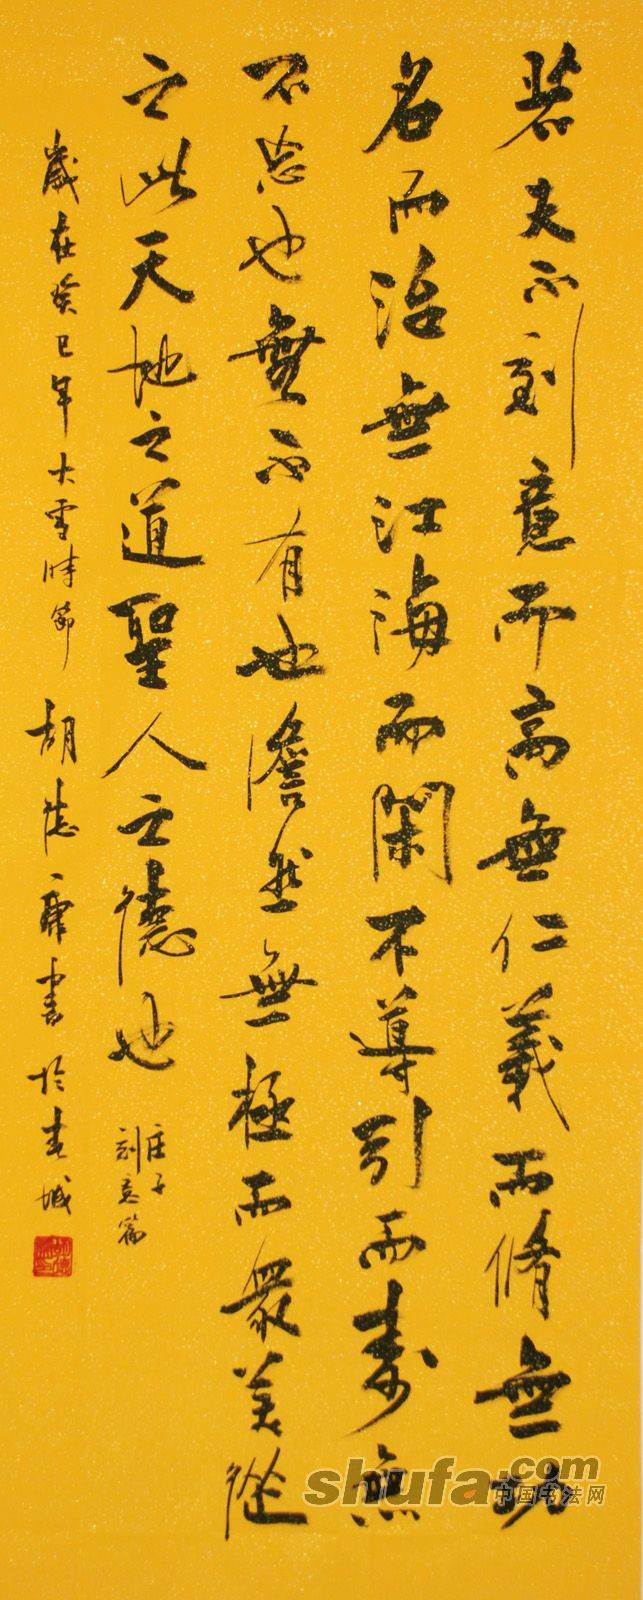 若夫不刻意而高無仁義而脩無功
名而治無江海而閑不導引而壽無
不忘也無不有也澹然無極而衆美從
之此天地之道聖人之德也
庄子
刻意篇
歲在癸巳年大雪時節 胡德康書於春城
shufa.com
中国书法网